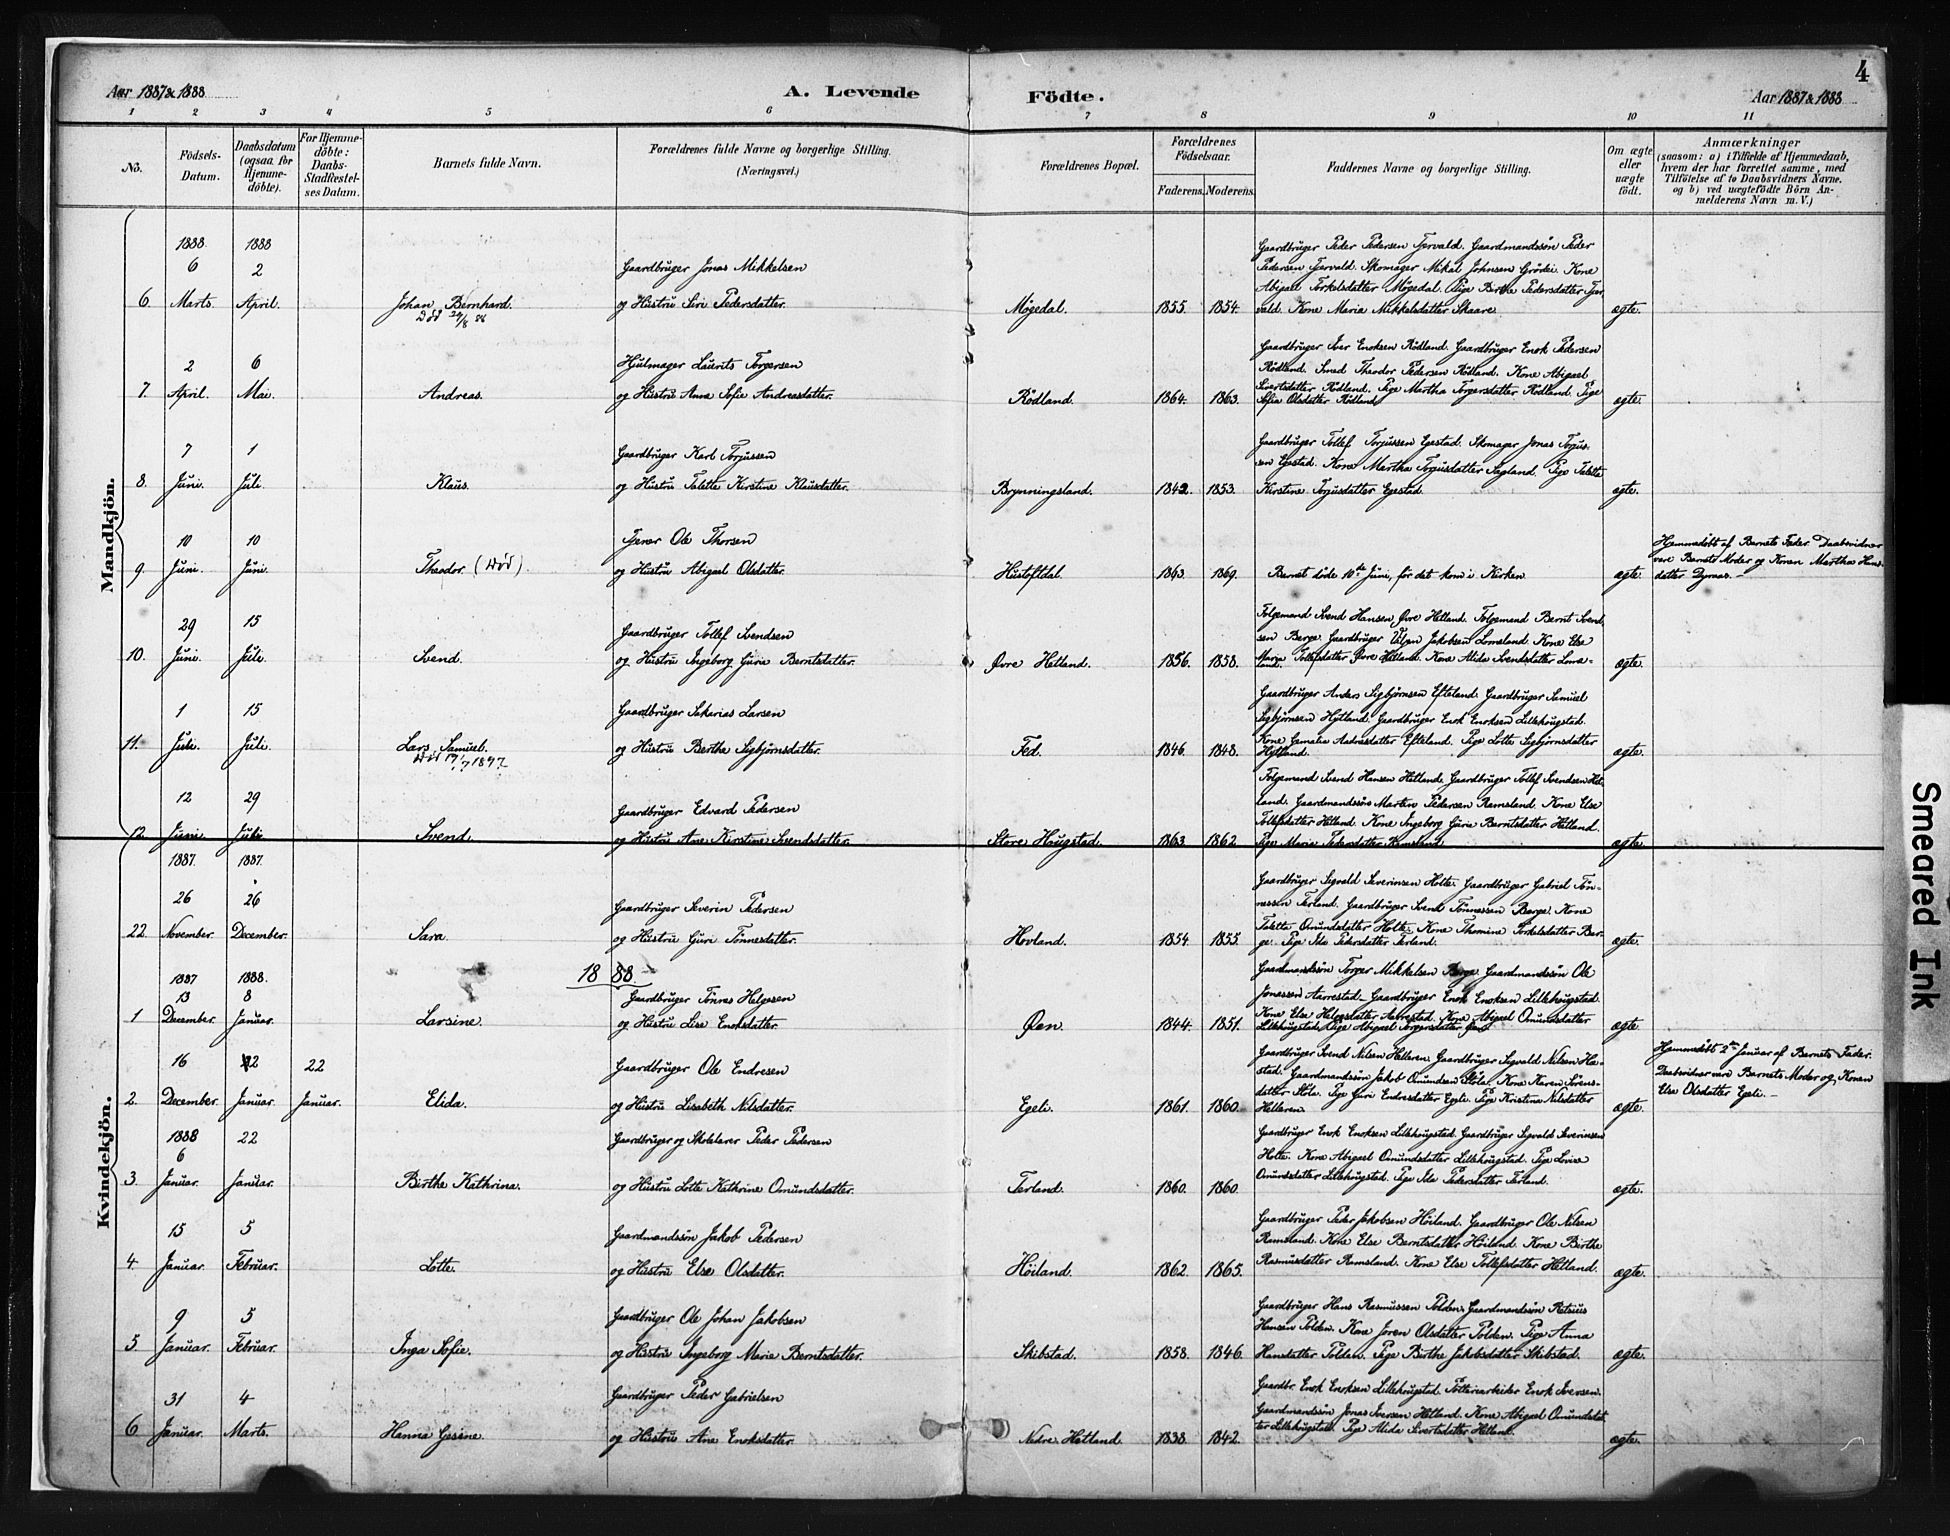 4
Aar 1887 & 1888
A. Levende
Födte.
Aar 1887 & 1888
1 2 3 4 5 6 7 8 9 10 11
No.
Födsels-
Datum.
Daabsdatum
(ogsaa for
Hjemme-
döbte).
For Hjemme-
döbte:
Daabs-
Stadfæstel-
ses Datum.
Barnets fulde Navn.
Forældrenes fulde Navne og borgerlige Stilling.
(Næringsvei.)
Forældrenes Bopæl.
Forældrenes
Födselsaar.
Faderens. Moderens.
Faddernes Navne og borgerlige Stilling.
Om ægte
eller
uægte
födt.
Anmærkninger
(saasom: a) i Tilfælde af Hjemmedaab,
hvem der har forrettet samme, med
Tilföielse af to Daabsvidners Navne,
og b) ved uægtefödte Börn An-
melderens Navn m. V.)
Mandkjön.
1888 1888
6 2
6. Marts. April.
Johan Bernhard.
Död
Gaardbruger Jonas Mikkelsen
og Hustru Siri Pedersdatter.
Møgedal. 1855. 1854.
Gaardbruger Peder Pedersen Tjørvald. Gaardmandssøn Peder
Pedersen Tjørvald. Skomager Mikal Johnsen Grødei. Kone
Abigael Torkelsdatter Møgedal. Pige Birthe Pedersdatter Tjør
vald. Kone Maria Mikkelsdatter Skaare.
ægte.
2 6
7. April. Mai.
Andreas.
Hjulmager Laurits Torgersen
og Hustru Anna Sofie Andreasdatter.
Rödland. 1864. 1863.
Gaardbruger Iver Enoksen Rödland. Gaardbruger Enok Pedersen
Rödland. Smed Theodor Pedersen Rödland. Kone Abigael
Sivertsdatter Rödland. Pige Martha Torgersdatter Rödland. Pige
Sofia Olsdatter Rödland.
ægte.
7 1
8. Juni. Juli.
Klaus.
Gaardbruger Karl Torjussen
og Hustru Talette Kirstine Klausdatter.
Brynningsland. 1842. 1853.
Gaardbruger Tollef Torjussen Egestad. Skomager Jonas Torjus-
sen Egestad. Kone Martha Torjusdatter Sagland. Pige Talette
Kirstine Torjusdatter Egestad.
ægte.
10 10
9. Juni. Juni.
Theodor. (död).
Tjener Ole Thorsen
og Hustru Abigael Olsdatter.
Hustoftdal. 1863. 1869.
Barnet döde 10de Juni, för det kom i Kirken.
ægte.
Hjemmedöbt af Barnets Fader. Daabsvidner
vare Barnets Moder og Konen Martha Hans-
datter Dyrnes.
29 15
10. Juni. Juli.
Svend.
Gaardbruger Tollef Svendsen
og Hustru Ingeborg Gurine Berntsdatter.
Øvre Hetland. 1856. 1858.
Folgemand Svend Hansen Øvre Hetland. Folgemand Bernt Svend-
sen Berge. Gaardbruger Jakobsen Lomeland. Kone Else
Maria Tollefsdatter Øvre Hetland. Kone Alida Svendsdatter Lome-
land.
ægte.
1 15
11. Juli. Juli.
Lars Samuel.
Död 1897
Gaardbruger Sakarias Larsen
og Hustru Berthe Sigbjörnsdatter.
Fed. 1846. 1848.
Gaardbruger Anders Sigbjørnsen Efteland. Gaardbruger Samuel
Sigbjørnsen Hytland. Gaardbruger Enok Enoksen Lillehaugstad.
Kone Gamalia Andreasdatter Efteland. Pige Lotte Sigbjørnsdatter
Hytland.
ægte.
12 29
12. Juni. Juli.
Svend.
Gaardbruger Edvard Pedersen
og Hustru Ane Kirstine Svendsdatter.
Store Haugstad. 1863. 1862.
Folgemand Svend Hansen Hetland. Gaardbruger Tollef Svendsen Het-
land. Gaardmandssøn Martin Pedersen Ramsland. Kone Else
Tollefsdatter Hetland. Kone Ingeborg Gurine Berntsdatter Hetland.
Pige Maria Pedersdatter Ramsland.
ægte.
Kvindekjön.
1887. 1887.
26 26
22. November. December.
Sara.
Gaardbruger Severin Pedersen
og Hustru Guri Tönnesdatter.
Hovland. 1854. 1855.
Gaardbruger Sigvald Severinsen Holte. Gaardbruger Gabriel Tön-
nessen Terland. Gaardbruger Svend Tönnessen Berge. Kone
Talette Omundsdatter Holte. Kone Thomine Torkelsdatter Ber-
ge. Pige Ida Pedersdatter Terland.
ægte.
1888
1887 1888.
13 8
1 December. Januar.
Larsine.
Gaardbruger Tönnes Helgesen
og Hustru Lise Enoksdatter.
Øen. 1844. 1851.
Gaardmandssön Torger Mikkelsen Berge. Gaardmandssön Ole
Jonassen Aarrestad. Gaardbruger Enok Enoksen Lillehaugstad.
Kone Else Helgesdatter Aarrestad. Kone Abigael Omundsdatter
Lillehaugstad. Pige Abigael Torgersdatter Øen.
ægte.
16 22 22
2. December. Januar. Januar.
Elida.
Gaardbruger Ole Endresen
og Hustru Lisabeth Nilsdatter.
Egeli. 1861. 1860.
Gaardbruger Svend Nilsen Helleren. Gaardbruger Sigvald Nilsen Ha-
stad. Gaardmandssön Jakob Omundsen Stöle. Kone Karen Sörens-
datter Stöle. Pige Guri Endresdatter Egeli. Pige Kristina Nilsdatter
Helleren.
ægte.
Hjemmedöbt 2den Januar af Barnets Fader.
Daabsvidner vare Barnets Moder og Konen
Else Olsdatter Egeli.
1888 22
6
3. Januar. Januar.
Birthe Kathrina.
Gaardbruger og Skolelærer Peder Pedersen
og Hustru Lotte Kathrine Omundsdatter.
Terland. 1860. 1860.
Gaardbruger Enok Enoksen Lillehaugstad. Gaardbruger Sigvald Severinsen
Holte. Kone Abigael Omundsdatter Lillehaugstad. Pige Lovise
Omundsdatter Lillehaugstad. Pige Ida Pedersdatter Terland.
ægte.
15 5
4. Januar. Februar.
Lotte.
Gaardmandssön Jakob Pedersen
og Hustru Else Olsdatter.
Höiland. 1862. 1865.
Gaardbruger Peder Jakobsen Höiland. Gaardbruger Ole Nilsen
Ramsland. Kone Else Berntsdatter Höiland. Kone Birthe
Rasmusdatter Ramsland. Kone Else Tollefsdatter Hetland.
ægte.
9 5
5. Januar. Februar.
Inga Sofie.
Gaardbruger Ole Johan Jakobsen
og Hustru Ingeborg Marie Berntsdatter.
Skibstad. 1858. 1846.
Gaardbruger Hans Rasmussen Polden. Gaardmandssön Retsius
Hansen Polden. Kone Joren Olsdatter Polden. Pige Anna
Hansdatter Polden. Pige Birthe Jakobsdatter Skibstad.
ægte.
31 4
6 Januar. Marts.
Hanna Gesine.
Gaardbruger Peder Gabrielsen
og Hustru Ane Enoksdatter.
Nedre Hetland. 1838. 1842.
Gaardbr. Enok Enoksen Lillehaugstad. Potteriarbeider Enok Iversen.
Gaardmandssön Jonas Iversen Hetland. Kone Abigael Omundsdat
ter Lillehaugstad. Pige Alida Sivertsdatter Hetland.
ægte.
Smeared Ink